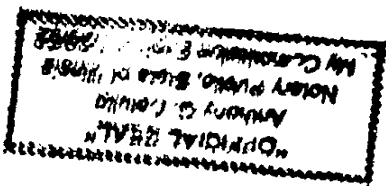 "OFFICIAL SEAL"
Anthony G.
Notary Public, State of Illinois
My Commission Expires